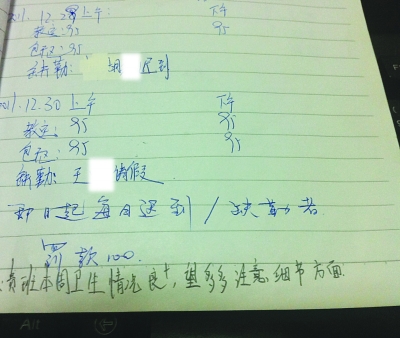 12.29 上午: 下午
教室: 95 95
包区: 95
缺勤: 迟到
12.30 上午 下午
教室: 95 95
包区: 95 95
缺勤: 王 请假
即日起每日迟到/缺勤者
罚款100.
贵班本周卫生情况良+, 望多多注意细节方面.
Alt